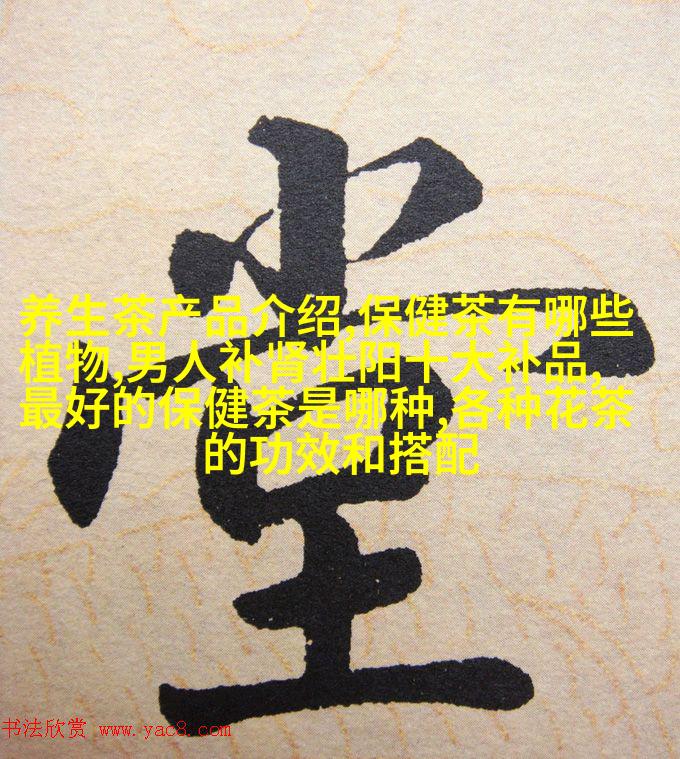 堂
养生茶产品介绍,保健茶有哪些
植物,男人补肾壮阳十大补品,
最好的保健茶是哪种,各种花茶
的功效和搭配
书法欣赏 www.yac8.com